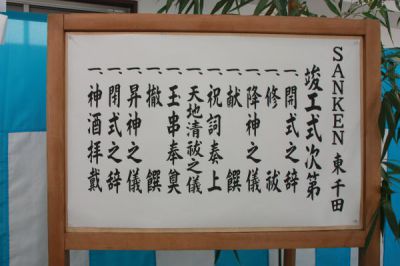 SANKEN 東千田
竣工式次第
一、開式之辞
一、修祓
一、降神之儀
一、献饌
一、祝詞奏上
一、天地清祓之儀
一、玉串奉奠
一、撤饌
一、昇神之儀
一、閉式之辞
一、神酒拝戴